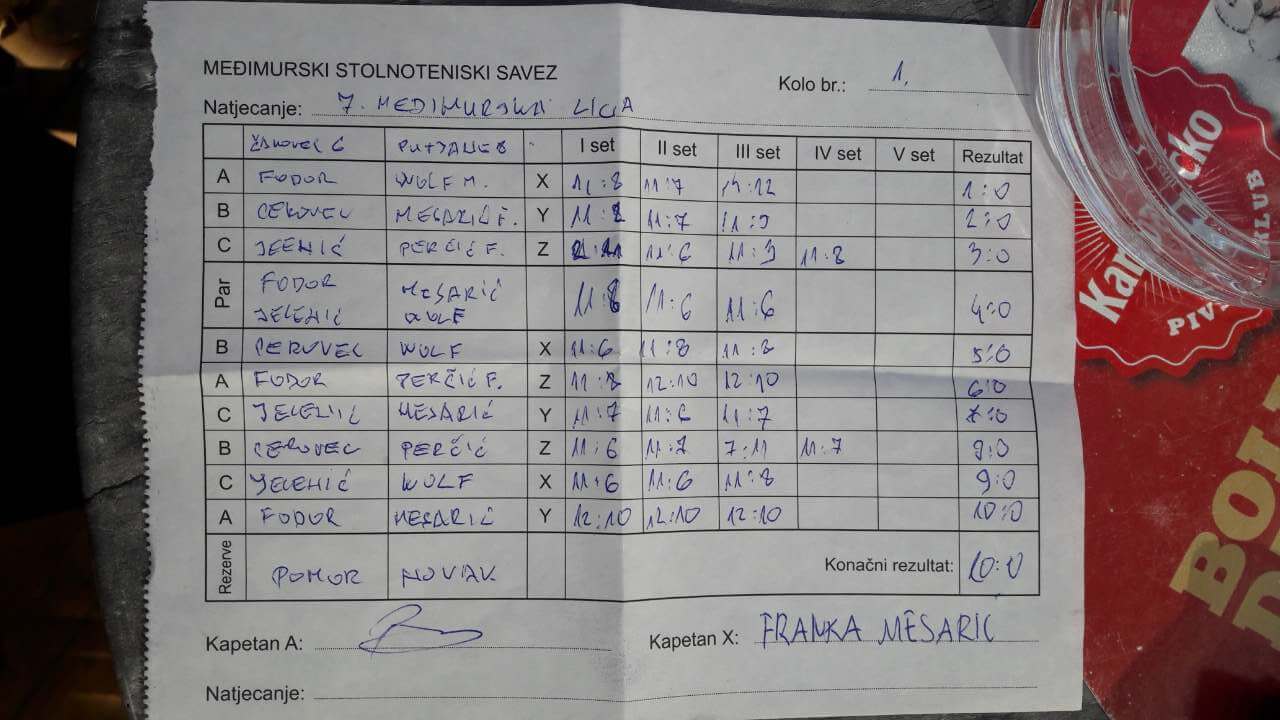 MEĐIMURSKI STOLNOTENISKI SAVEZ
Kolo br.: 1.
Natjecanje: 7. MEĐIMURSKA LIGA
ČAKOVEC 6 PUTJANE B I set II set III set IV set V set Rezultat
A FODOR WOLF M. X 11:8 11:7 14:12 1:0
B CEROVEC MESARIĆ F. Y 11:8 11:7 11:9 2:0
C PERČIĆ F. Z 11:6 11:9 11:8 3:0
Par FODOR MESARIĆ 11:8 11:6 11:6 4:0
JELENIĆ WOLF
B CEROVEC WOLF X 11:6 11:8 11:8 5:0
A FODOR PERČIĆ F. Z 11:8 12:10 12:10 6:0
C JELENIĆ MESARIĆ Y 11:7 11:6 11:7 :0
B CEROVEC PERČIĆ Z 11:6 11:7 7:11 11:7 :0
C JELENIĆ WOLF X 11:6 11:6 11:8 9:0
A FODOR MESARIĆ Y 12:10 12:10 12:10 10:0
Rezerve POMOR NOVAK Konačni rezultat: 10:0
Kapetan A:
Kapetan X: FRANKA MESARIC
Natjecanje: